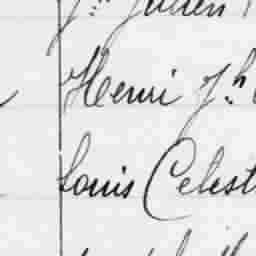 Jn Julien
Henri Jh
Louis Celest